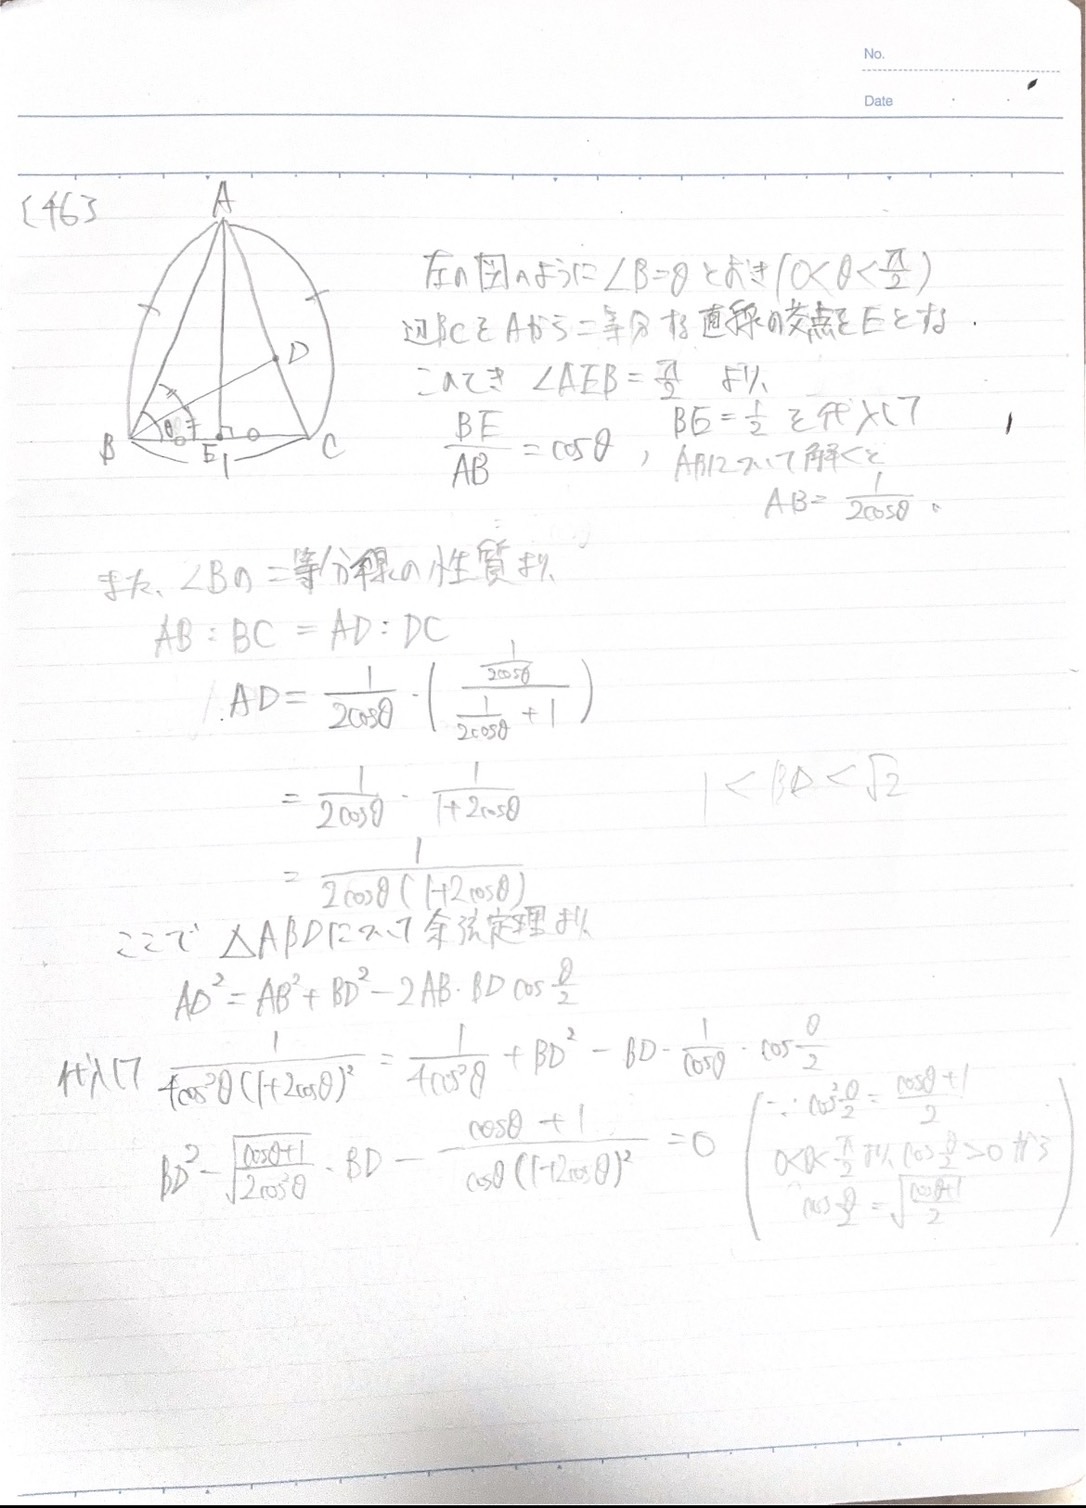 No.
Date
[46]
A
D
B
θ
E
C
1
左の図のように∠B=θとおき(0<θ<π/2)
辺BCをAから二等分する直線の交点をEとする.
このとき ∠AEB=π/2 より、
BE/AB = cosθ , BE=1/2 を代入して
ABについて解くと
AB= 1/(2cosθ) 。
また、∠Bの二等分線の性質より、
AB:BC = AD:DC
AD= 1/(2cosθ) · ( (1/(2cosθ)) / (1/(2cosθ) + 1) )
= 1/(2cosθ) · 1/(1+2cosθ)
1 < BD < √2
= 1/(2cosθ(1+2cosθ))
ここで △ABDについて余弦定理より、
AD²=AB²+BD²-2AB·BD cos θ/2
代入して 1/(4cos²θ(1+2cosθ)²) = 1/(4cos²θ) + BD² - BD· 1/cosθ · cos θ/2
BD² - √((cosθ+1)/(2cos²θ)) · BD - (cosθ+1)/(cosθ(1+2cosθ)²) = 0
(∵ cos² θ/2 = (cosθ+1)/2
0<θ<π/2 より、cos θ/2 >0 から
cos θ/2 = √((cosθ+1)/2) )